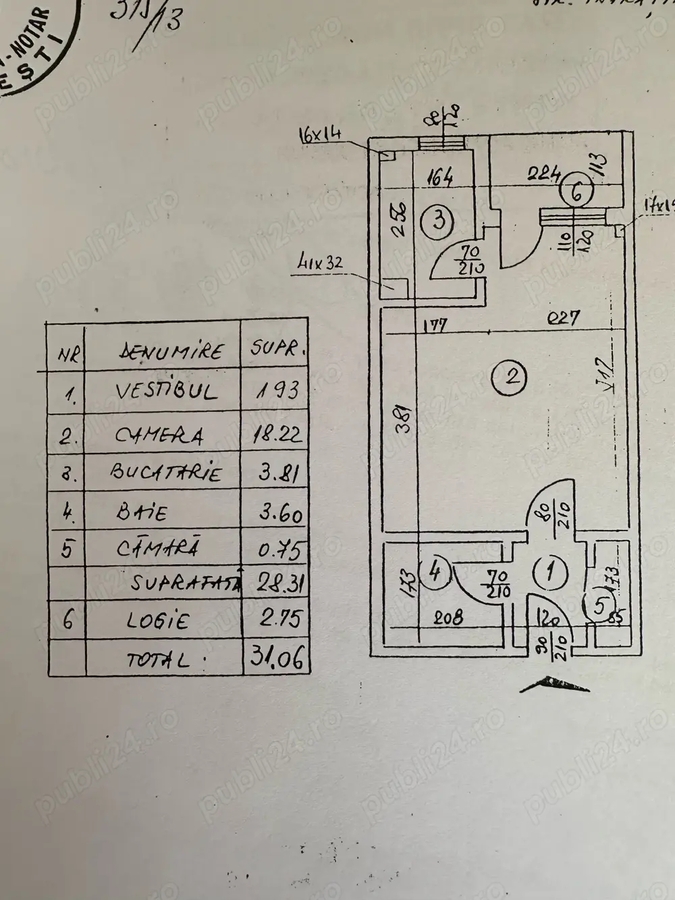 NOTAR
EȘTI
315/13
16x14
80
120
164
224
113
6
256
3
17x15
70
210
110
120
41x32
177
227
417
2
381
NR DENUMIRE SUPR.
1. VESTIBUL 1 93
2. CAMERA 18.22
3. BUCATARIE 3.81
4. BAIE 3.60
5 CĂMARĂ 0.75
SUPRAFATA 28.31
6 LOGIE 2.75
TOTAL. 31.06
80
210
173
4
70
210
1
173
5
208
120
85
90
210
publi24.ro